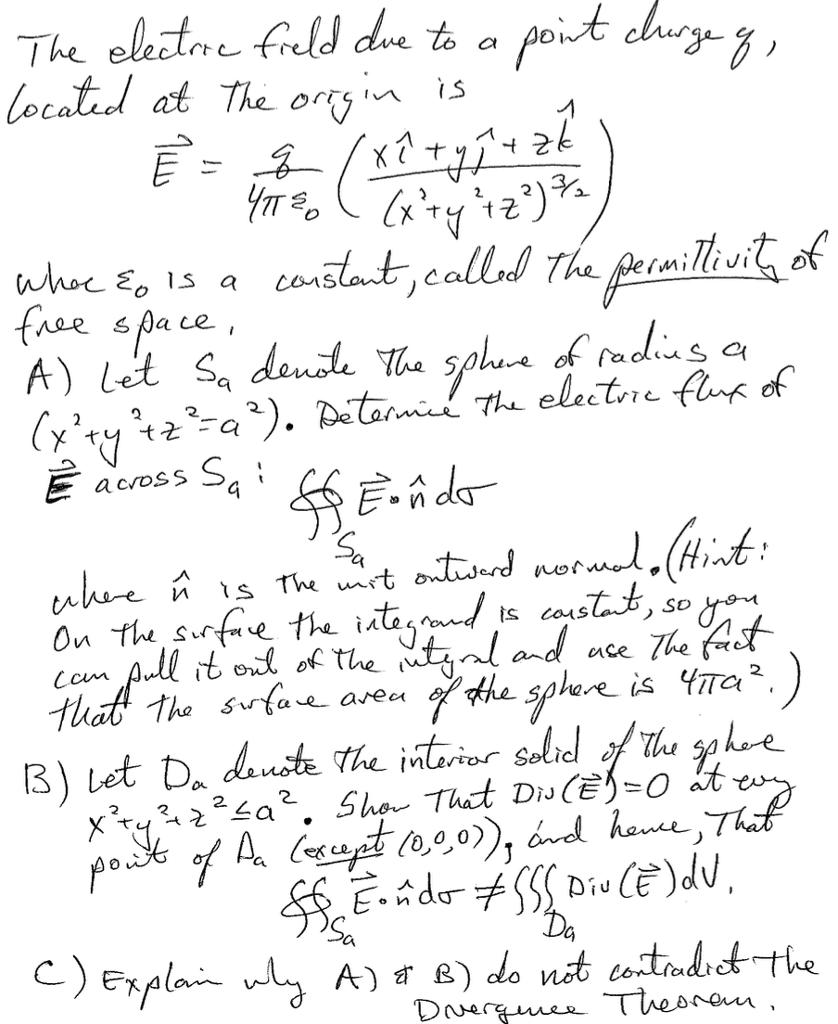 The electric field due to a point charge q,
located at the origin is
\vec{E} = \frac{q}{4\pi\varepsilon_0} \left( \frac{x\hat{i} + y\hat{j} + z\hat{k}}{(x^2+y^2+z^2)^{3/2}} \right)
where ε₀ is a constant, called the permittivity of
free space.
A) Let Sₐ denote the sphere of radius a
(x²+y²+z²=a²). Determine the electric flux of
\vec{E} across Sₐ: \oiint_{S_a} \vec{E}•\hat{n} dσ
where \hat{n} is the unit outward normal. (Hint:
On the surface the integrand is constant, so you
can pull it out of the integral and use the fact
that the surface area of the sphere is 4πa².)
B) Let Dₐ denote the interior solid of the sphere
x²+y²+z²≤a². Show that Div(\vec{E})=0 at every
point of Dₐ (except (0,0,0)), and hence, that
\oiint_{S_a} \vec{E}•\hat{n} dσ ≠ \iiint_{D_a} Div(\vec{E}) dV.
C) Explain why A) & B) do not contradict the
Divergence Theorem.